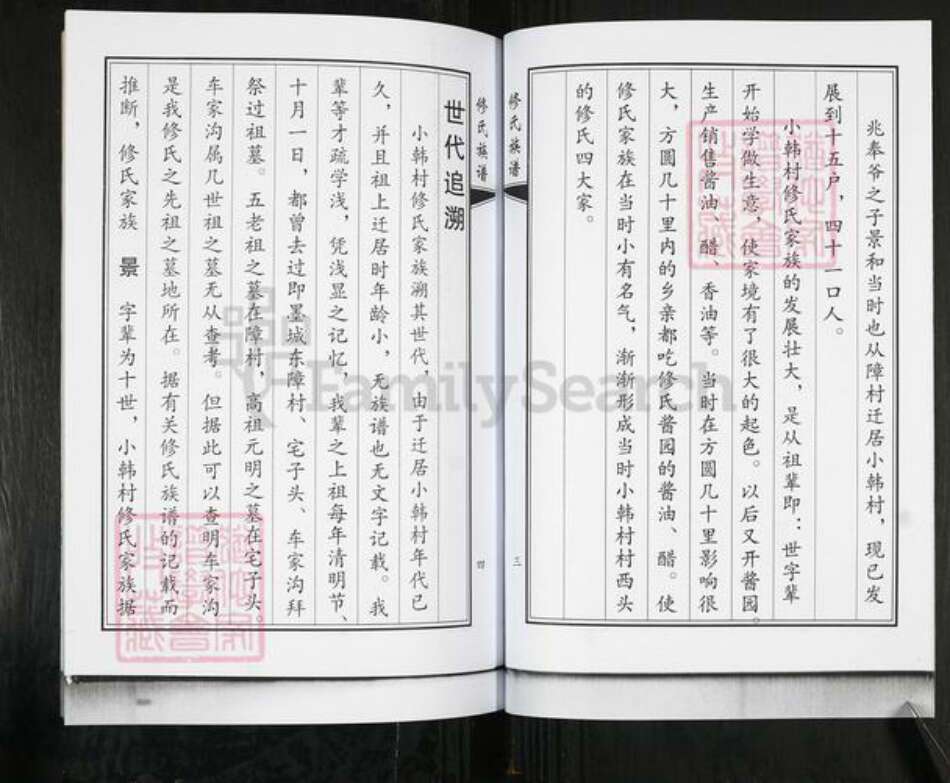 兆奉爷之子景和当时也从障村迁居小韩村，现已发
展到十五户，四十一口人。
小韩村修氏家族的发展壮大，是从祖辈即：世字辈
开始学做生意，使家境有了很大的起色。以后又开酱园。
生产销售酱油、醋、香油等。当时在方圆几十里影响很
大，方圆几十里内的乡亲都吃修氏酱园的酱油、醋。使
修氏家族在当时小有名气，渐渐形成当时小韩村村西头
的修氏四大家。
修氏族谱
三
修氏族谱
四
世代追溯
小韩村修氏家族溯其世代，由于迁居小韩村年代已
久，并且祖上迁居时年龄小，无族谱也无文字记载。我
辈等才疏学浅，凭浅显之记忆，我辈之上祖每年清明节、
十月一日，都曾去过即墨城东障村、宅子头、车家沟拜
祭过祖墓。五老祖之墓在障村，高祖元明之墓在宅子头。
车家沟属几世祖之墓无从查考。但据此可以查明车家沟
是我修氏之先祖之墓地所在。据有关修氏族谱的记载而
推断，修氏家族 景 字辈为十世，小韩村修氏家族据
FamilySearch